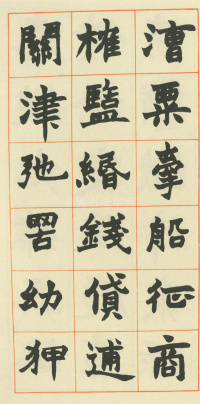 漕粟牽船征商
榷鹽緡錢貸逋
關津弛罟幼狎